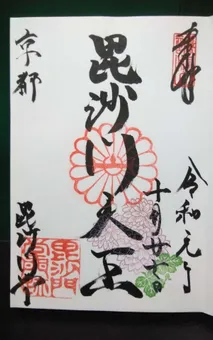 奉拝
令和元年
十月廿六日
毘沙門天王
京都
毘沙門堂
毘沙門